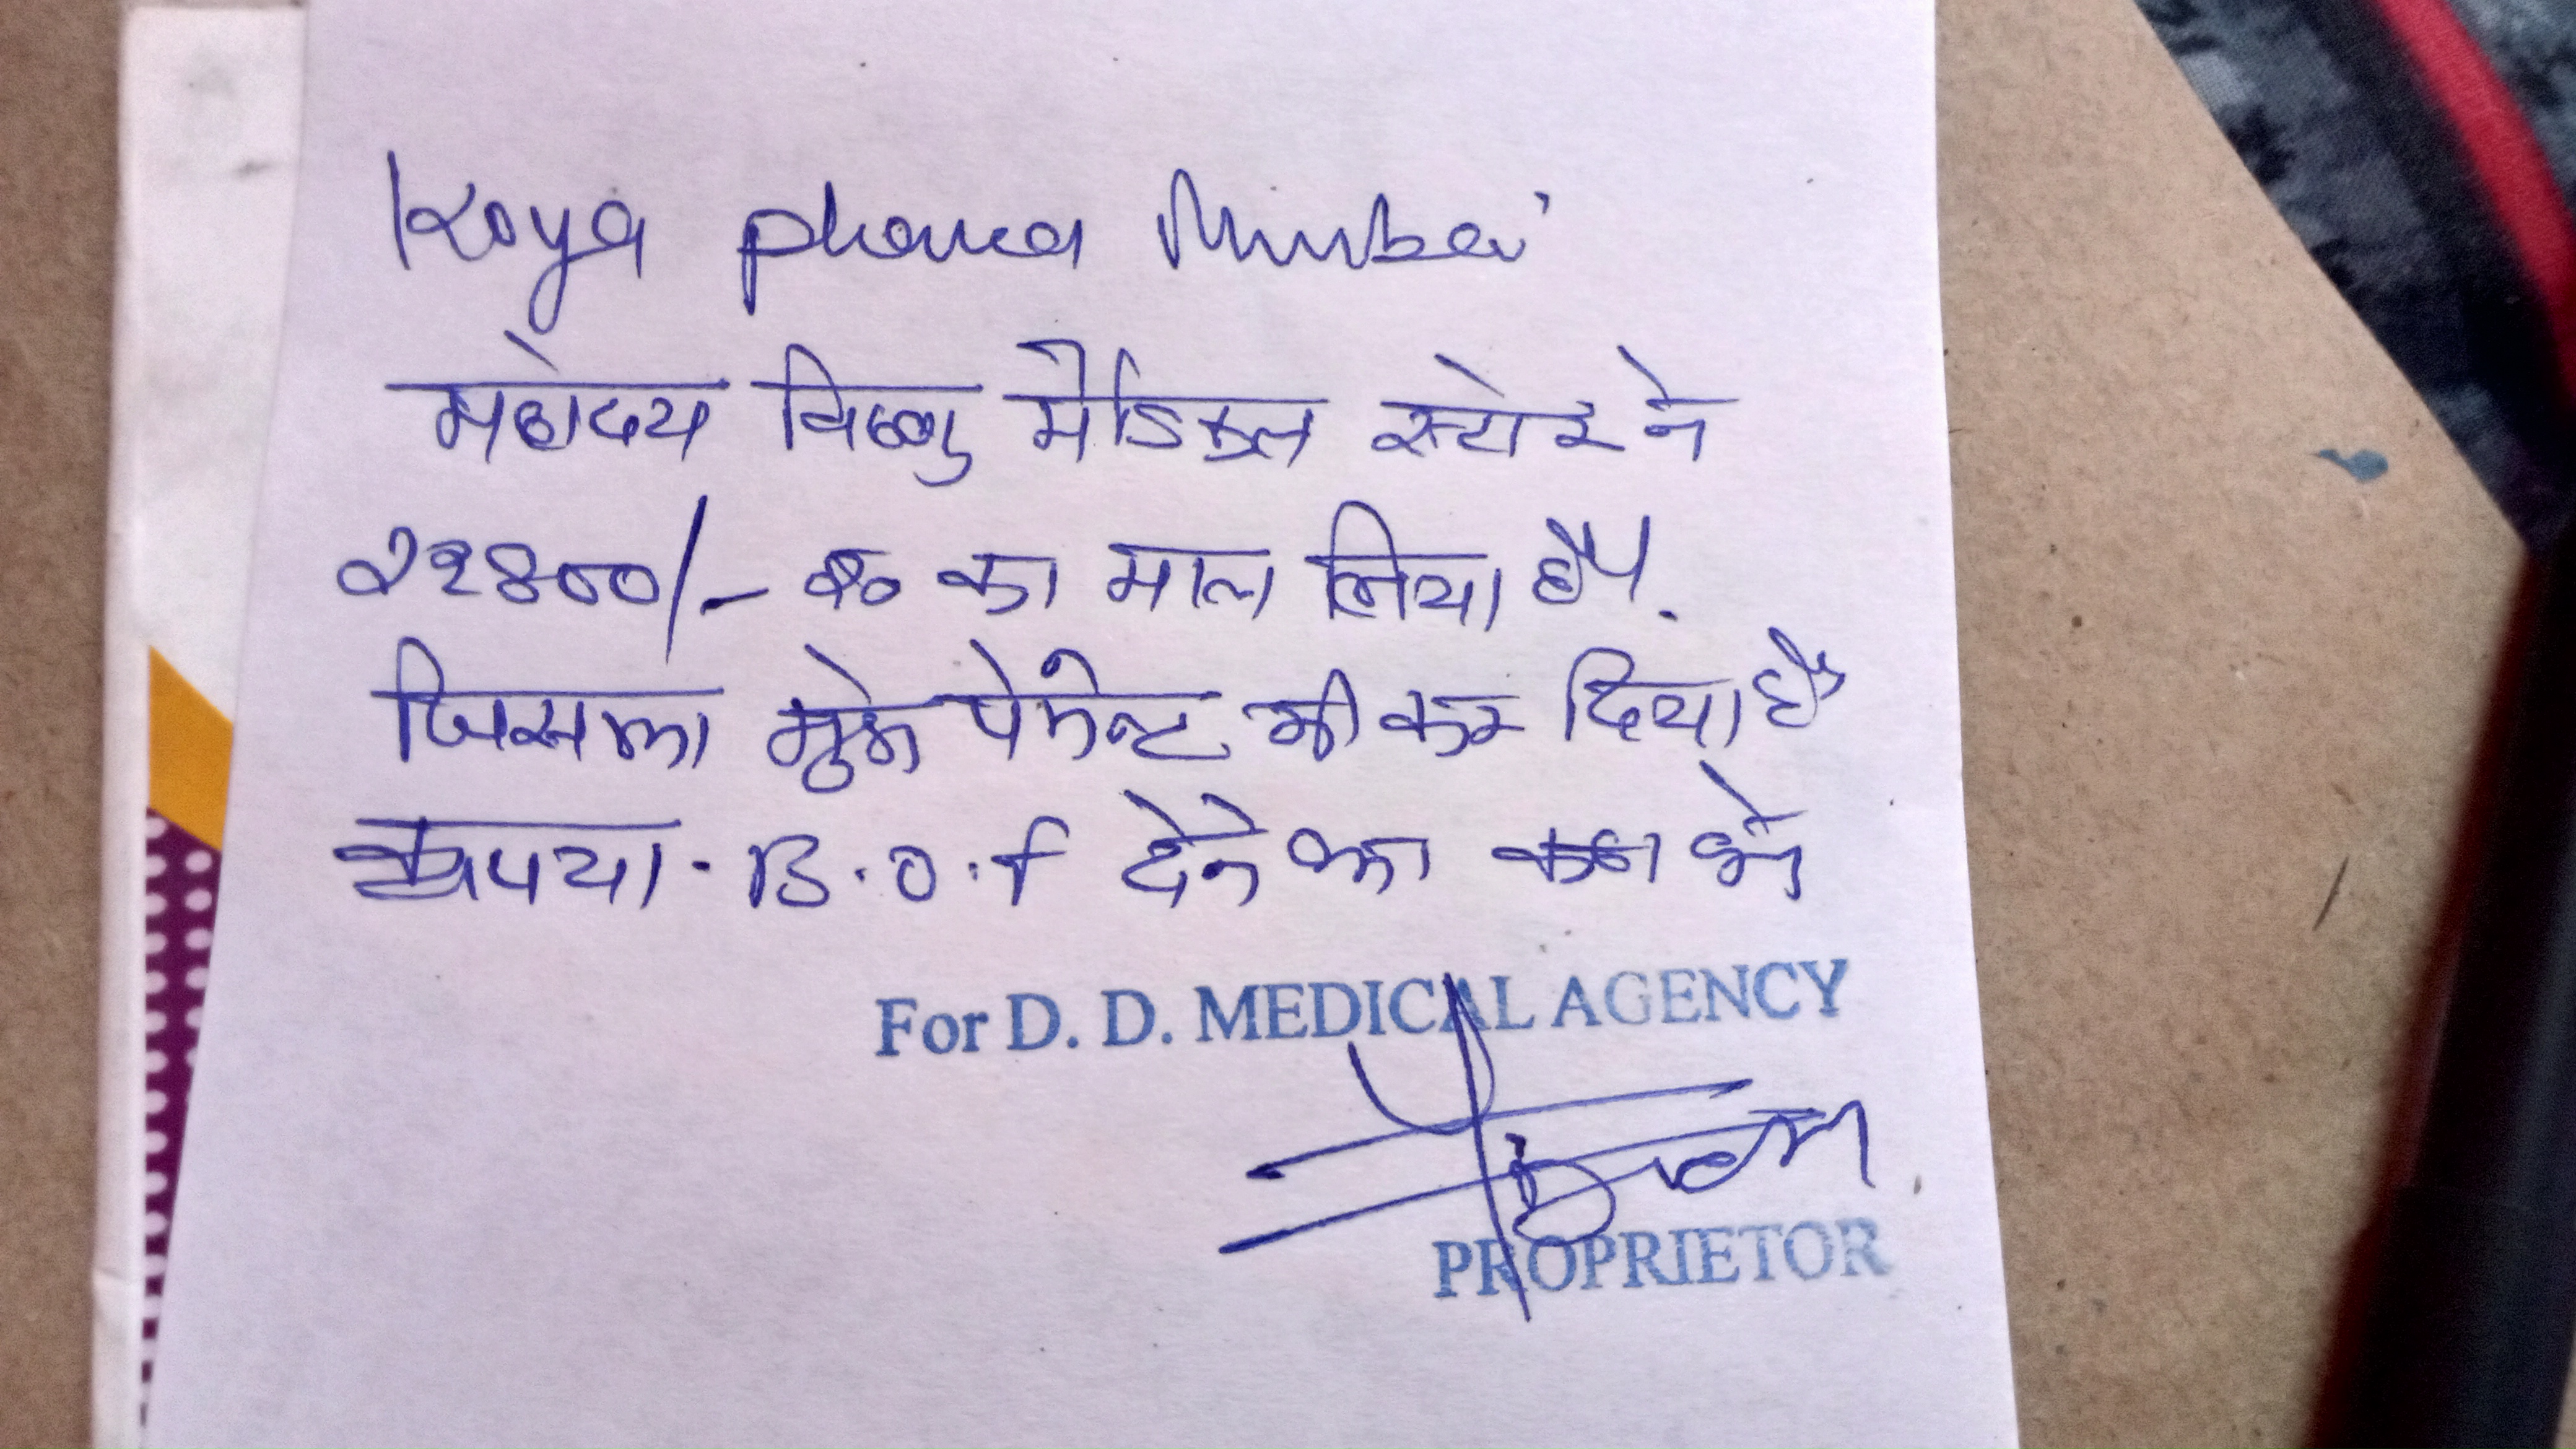 Koya pharma Mumbai
महोदय विष्णु मेडिकल स्टोर ने
22800/- रू० का माल लिया है।
जिसका मुझे पेमेन्ट भी कर दिया है
कृपया. B.O.F देने का कष्ट करे
For D. D. MEDICAL AGENCY
PROPRIETOR